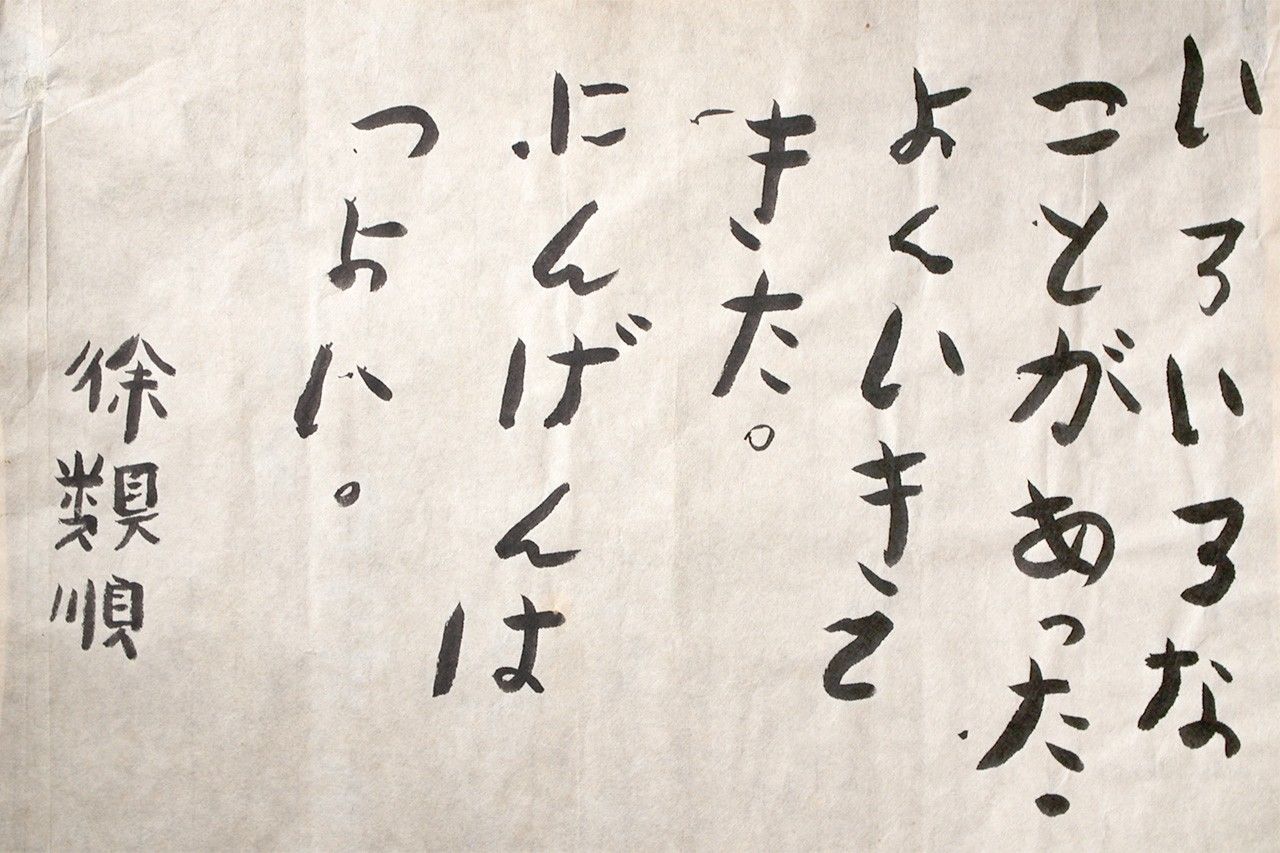 いろいろな
ことがあった。
よくいきて
きた。
にんげんは
つよい。
徐類順